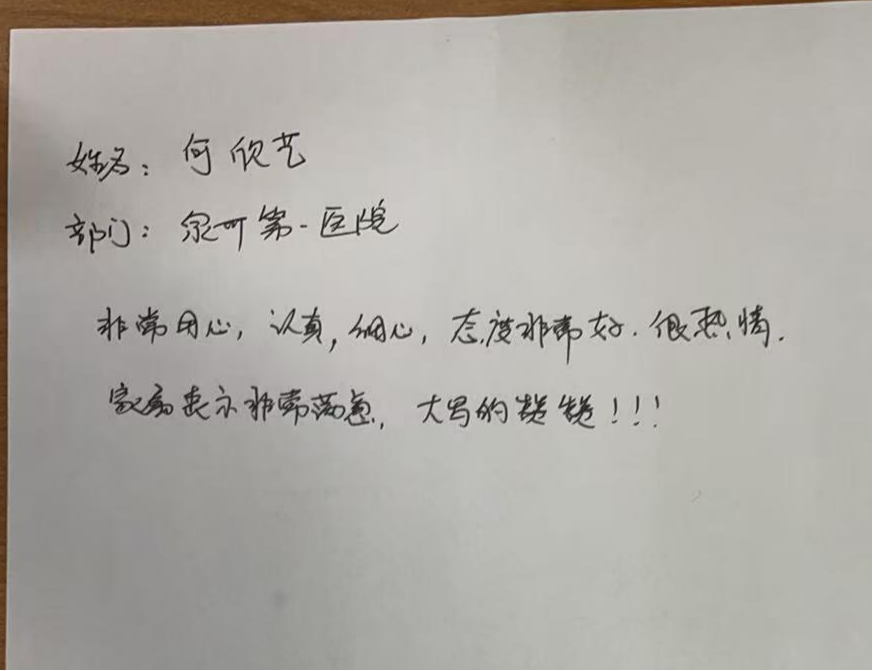 姓名：何欣艺
部门：泉州第一医院
非常用心，认真，细心，态度非常好.很热情.
家属表示非常满意，大写的赞赞！！！